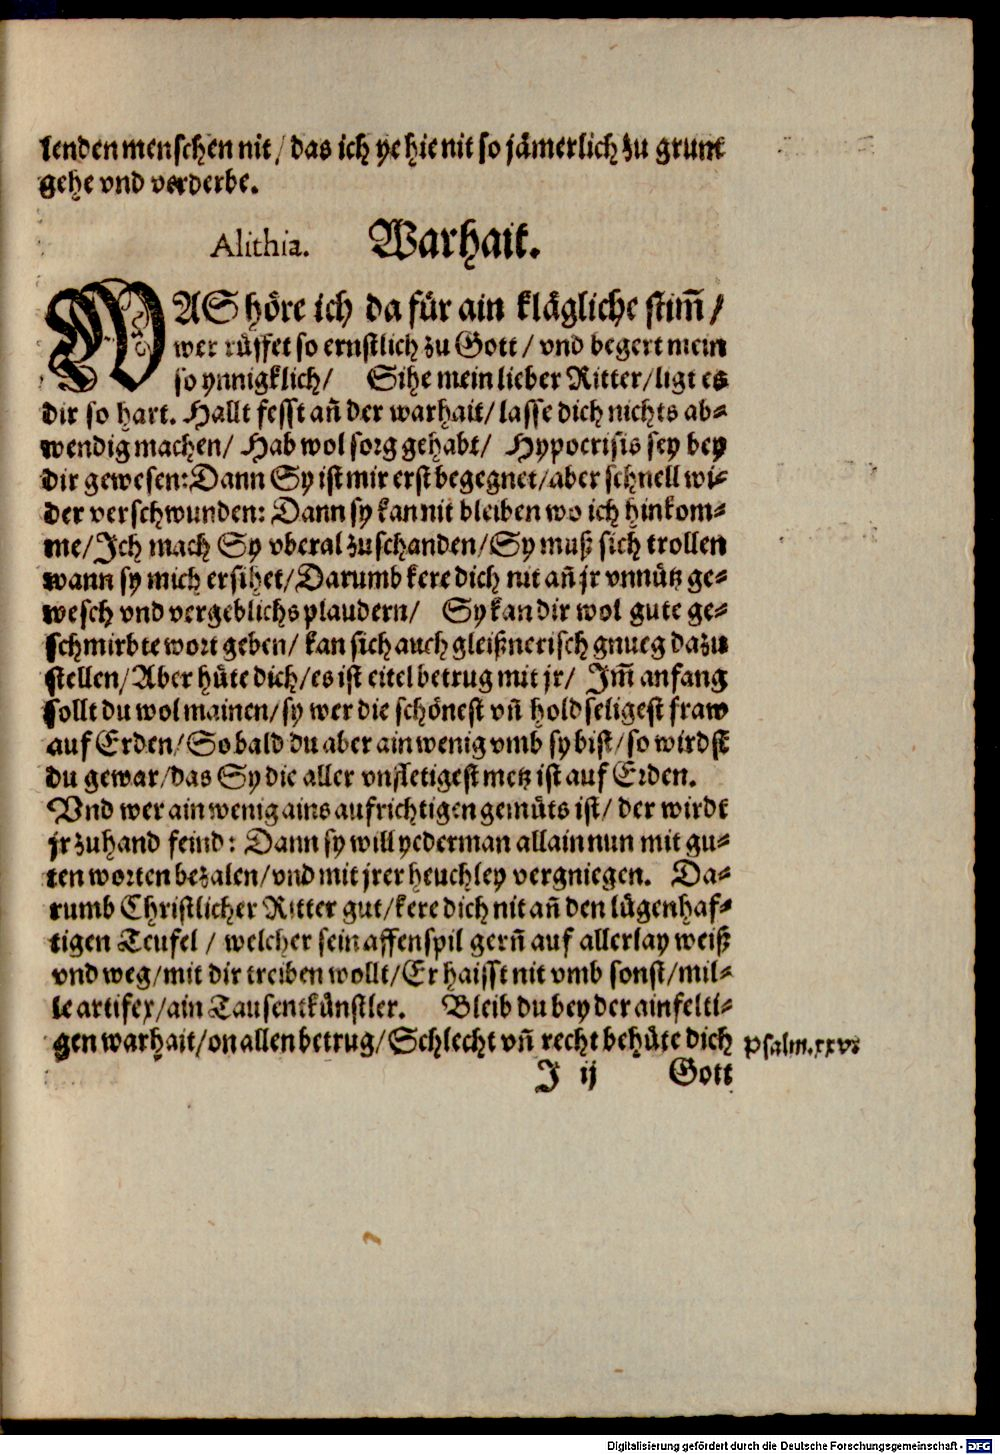 lenden menschen nit / das ich ye hie nit so jämerlich zu grunt
gehe vnd verderbe.
Alithia. Warhait.
WAS höre ich da für ain klägliche stim̃ /
wer rüffet so ernstlich zu Gott / vnd begert mein
so ynnigklich / Sihe mein lieber Ritter / ligt es
dir so hart. Hallt fesst añ der warhait / lasse dich nichts ab⸗
wendig machen / Hab wol sorg gehabt / Hypocrisis sey bey
dir gewesen: Dann Sy ist mir erst begegnet / aber schnell wi⸗
der verschwunden: Dann sy kan nit bleiben wo ich hinkom⸗
me / Ich mach Sy vberal zuschanden / Sy muß sich trollen
wann sy mich ersihet / Darumb kere dich nit añ jr vnnütz ge⸗
wesch vnd vergeblichs plaudern / Sy kan dir wol gute ge⸗
schmirbte wort geben / kan sich auch gleißnerisch gnueg dazu
stellen / Aber hüte dich / es ist eitel betrug mit jr / Im̃ anfang
sollt du wol mainen / sy wer die schönest vñ holdseligest fraw
auf Erden / So bald du aber ain wenig vmb sy bist / so wirdst
du gewar / das Sy die aller vnfletigest metz ist auf Erden.
Vnd wer ain wenig ains aufrichtigen gemüts ist / der wirdt
jr zuhand feind: Dann sy will yederman allain nun mit gu⸗
ten worten bezalen / vnd mit jrer heuchley vergniegen. Da⸗
rumb Christlicher Ritter gut / kere dich nit añ den lügenhaf⸗
tigen Teufel / welcher sein affenspil gern̄ auf allerlay weiß
vnd weg / mit dir treiben wollt / Er haisst nit vmb sonst / mil⸗
le artifex / ain Tausentkünstler. Bleib du bey der ainfelti⸗
gen warhait / on allen betrug / Schlecht vñ recht behüte dich Psalm.xxvi
J ij Gott
Digitalisierung gefördert durch die Deutsche Forschungsgemeinschaft - DFG